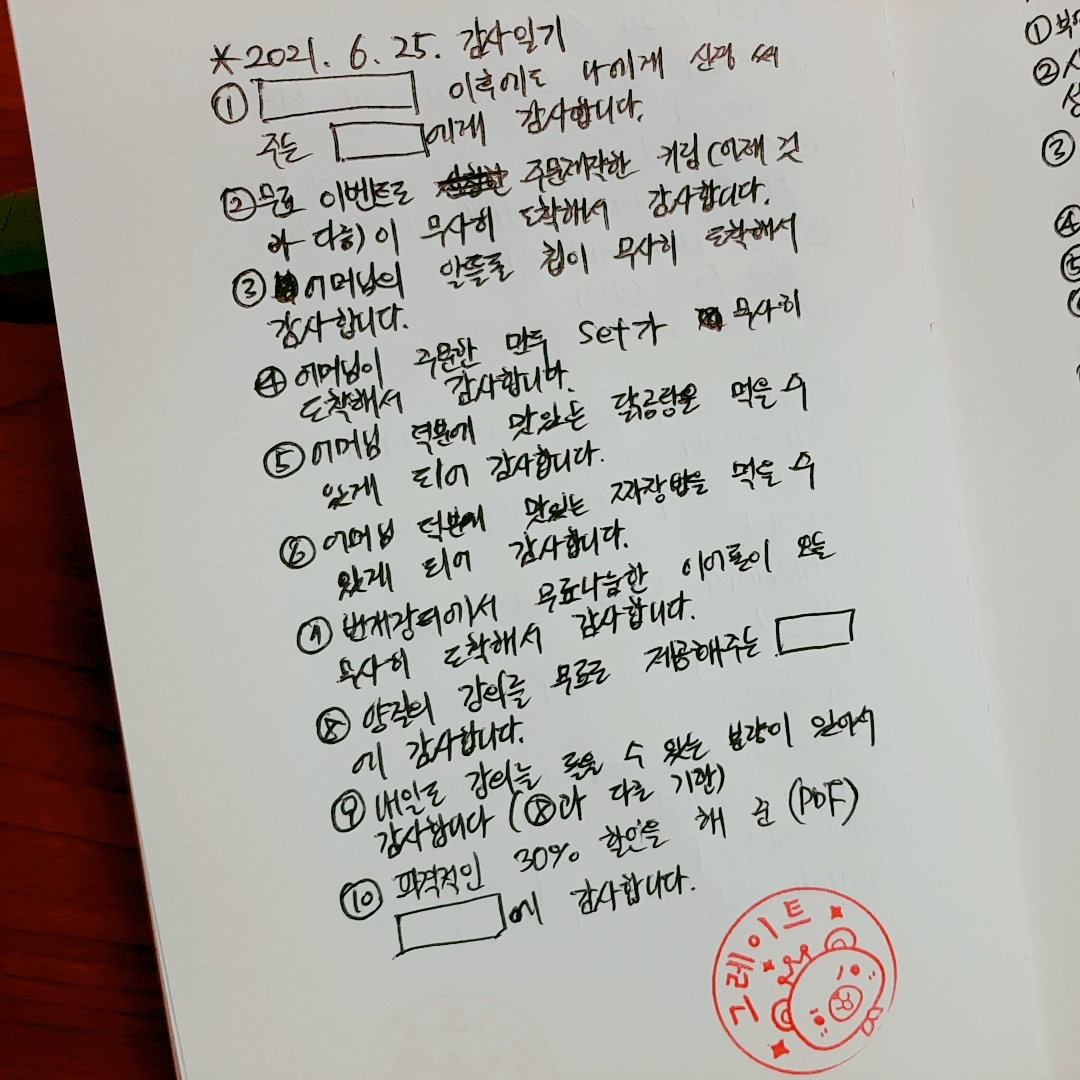 *2021. 6. 25. 감사일기
① 이후에도 나에게 신경 써
주는 에게 감사합니다.
② 무료 이벤트로 주문제작한 키링(어제 것
과 다름)이 무사히 도착해서 감사합니다.
③ 어머님의 알뜰폰 칩이 무사히 도착해서
감사합니다.
④ 어머님이 주문한 만두 set가 무사히
도착해서 감사합니다.
⑤ 어머님 덕분에 맛있는 닭곰탕을 먹을 수
있게 되어 감사합니다.
⑥ 어머님 덕분에 맛있는 짜장밥을 먹을 수
있게 되어 감사합니다.
⑦ 번개장터에서 무료나눔한 이어폰이 오늘
무사히 도착해서 감사합니다.
⑧ 양질의 강의를 무료로 제공해주는
에 감사합니다.
⑨ 내일도 강의를 들을 수 있는 분량이 있어서
감사합니다 (⑧과 다른 기관)
⑩ 파격적인 30% 할인을 해 준 (PDF)
에 감사합니다.
그레이트
①
②
③
④
⑤